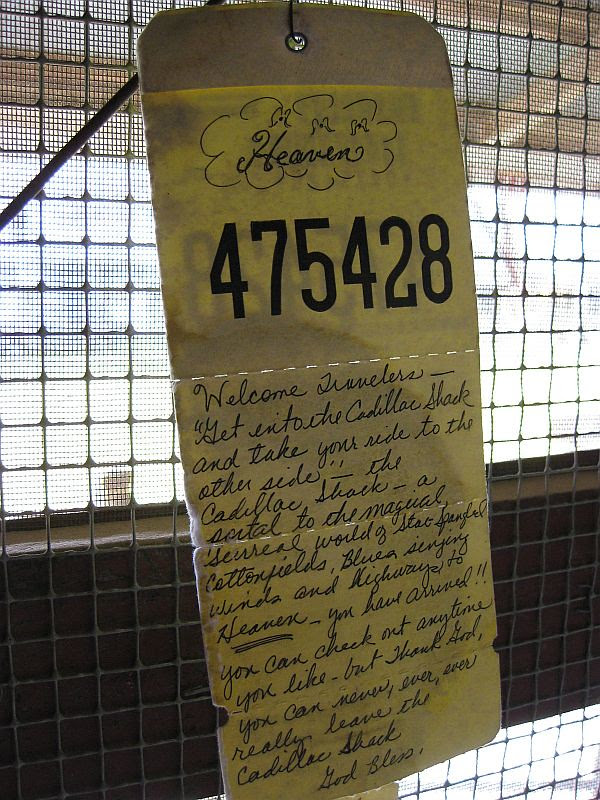 Heaven
475428
Welcome Travelers —
"Get into the Cadillac Shack
and take your ride to the
other side"! — the
Cadillac Shack — a
portal to the magical,
surreal world of Star-Spangled
Cottonfields, Blues singing
winds and Highways to
Heaven — you have arrived!!
you can check out anytime
you like — but Thank God,
you can never, ever, ever
really leave the
Cadillac Shack
God Bless,